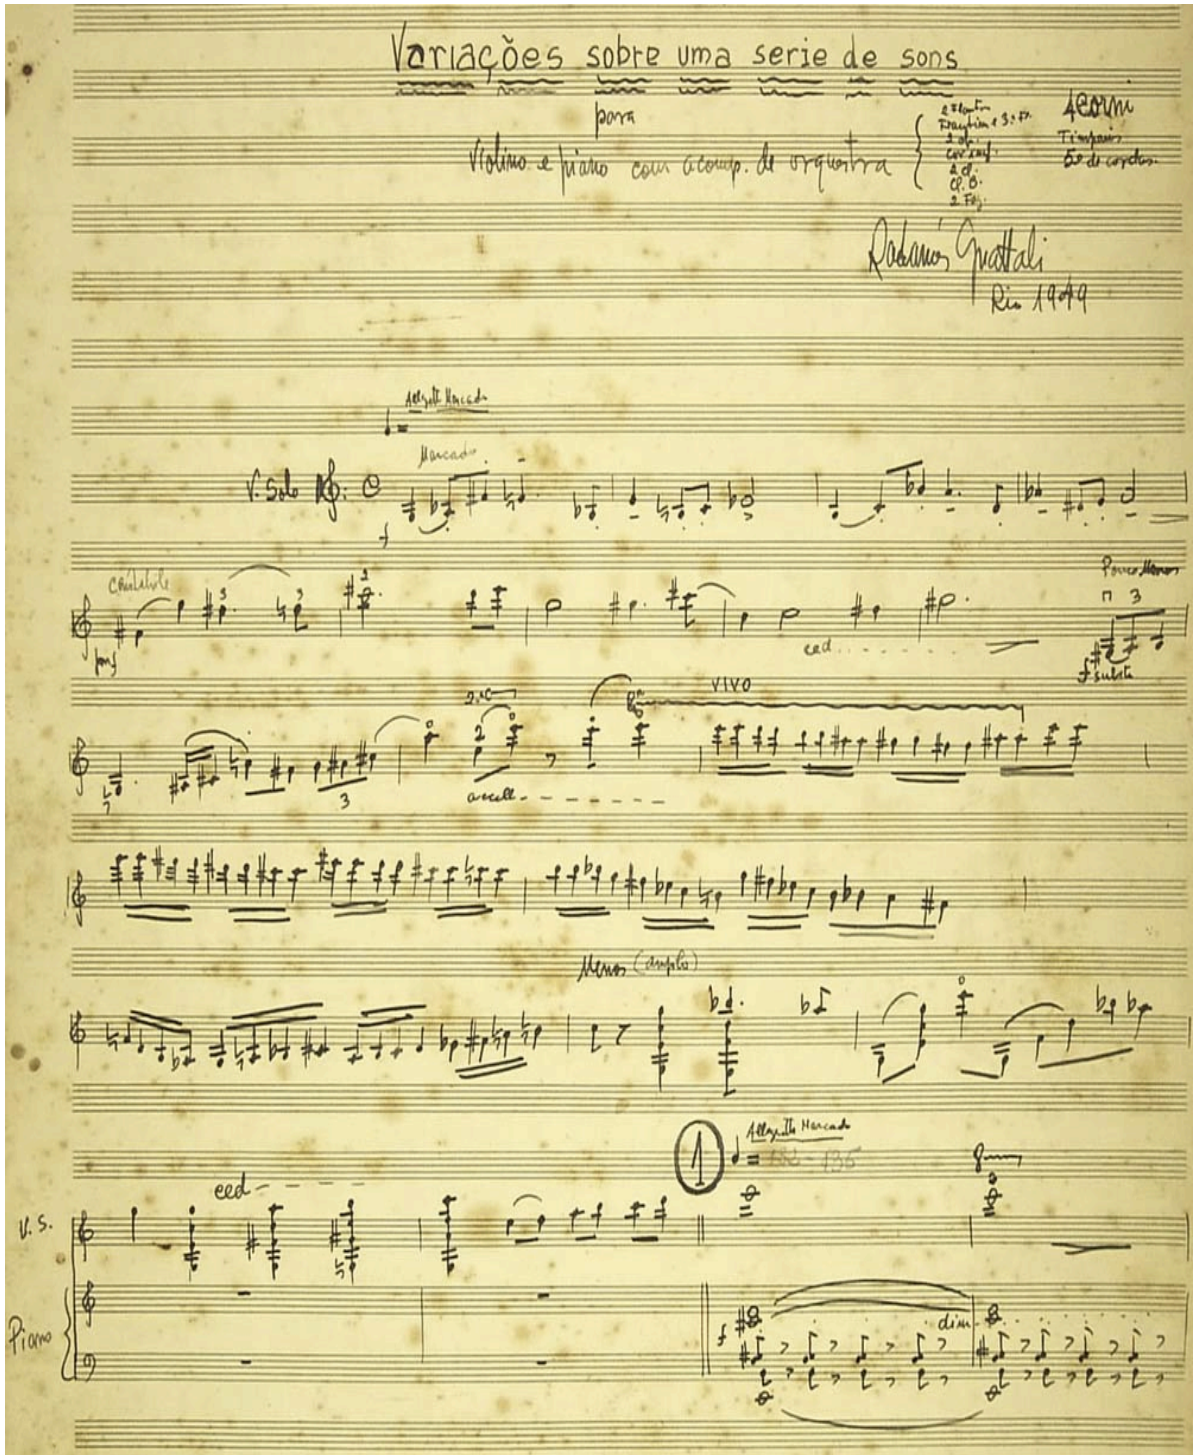 Variações sobre uma serie de sons
para
Violino e piano com acomp. de orquestra
2 Flautas
Flautim e 3ª Fl.
2 ob.
Cor ingl.
2 cl.
Cl. B.
2 Fag.
4 Corni
Timpani
5º de cordas.
Radamés Gnattali
Rio 1949
Allegretto Marcado
=
Marcado
V. Solo
f
Cantabile
Pouco Menos
3 3
2
3
ced.
f subito
2ª C
VIVO
2
3
accell.
Menos (amplo)
1
Allegretto Marcado
= 132-135
8
ced
V. S.
Piano
f
dim.